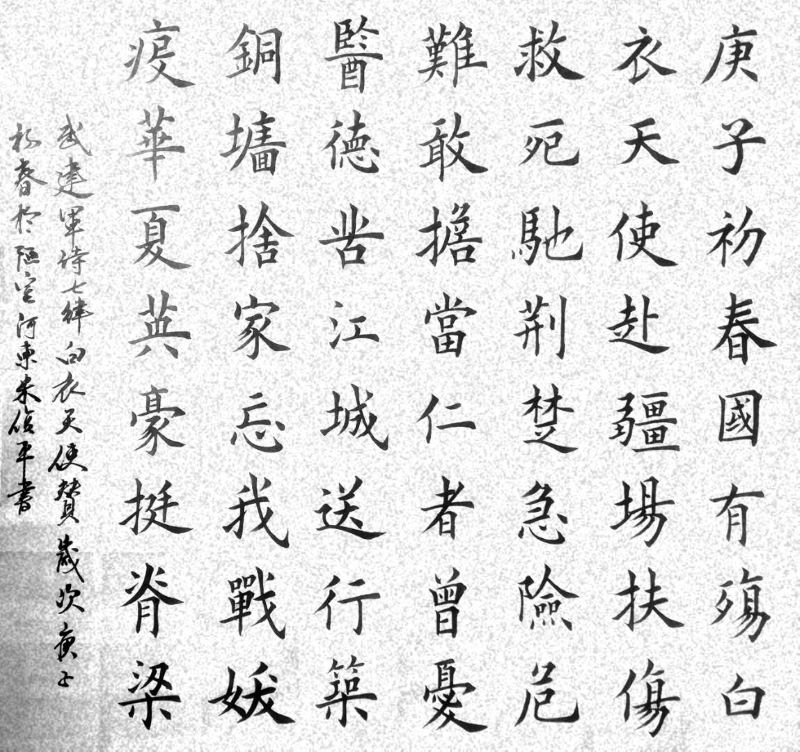 庚子初春國有殤白
衣天使赴疆場扶傷
救死馳荆楚急險危
難敢擔當仁者曾憂
醫德江城送行築
銅墻捨家忘我戰媛
疫華夏英豪挺脊梁
武建軍詩七律白衣天使贊歲次庚子
初春於陋室河東朱信平書